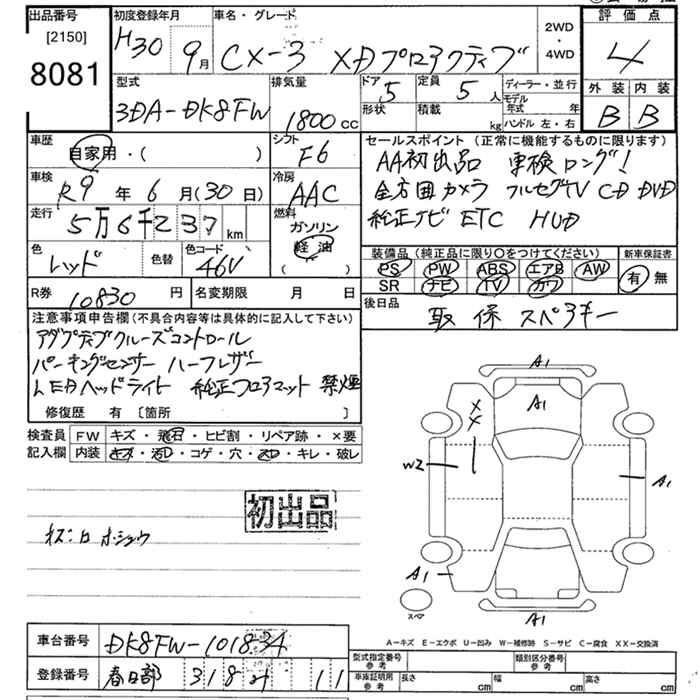 出品番号
[2150]
8081
初度登録年月
H30 9月
車名・グレード
CX-3 XDプロアクティブ
2WD
・
4WD
評価点
4
外装 内装
B B
型式
3DA-DK8FW
排気量
1800cc
ドア 5
形状
定員 5 人
積載 kg
ディーラー・並行
モデル年式 年
ハンドル 左・右
車歴
自家用・( )
シフト
F6
車検
R9年6月(30日)
冷房
AAC
走行
5万6千237km
燃料
ガソリン
軽油
( )
色
レッド
色替
色コード
46V
セールスポイント(正常に機能するものに限ります)
AA初出品 車検ロング!
全方囲カメラ フルセグTV CD DVD
純正ナビ ETC HUD
装備品(純正品に限り○をつけてください)
PS PW ABS エアB AW
SR ナビ TV カワ
新車保証書
有・無
R券 10830円
名変期限 月 日
後日品
取 保 スペアキー
注意事項申告欄(不具合内容等は具体的に記入して下さい)
アダプティブクルーズコントロール
パーキングセンサー ハーフレザー
LEDヘッドライト 純正フロアマット 禁煙
修復歴 有〔箇所 〕
検査員
記入欄
FW キズ・飛石・ヒビ割・リペア跡・×要
内装 キズ・汚れ・コゲ・穴・凹・キレ・破レ
初出品
A1
A1
X
X
W2
A1
A1
スペア
A1
A-キズ E-エクボ U-凹み W-補修跡 S-サビ C-腐食 XX-交換済
車台番号 DK8FW-101834
登録番号 春日部 318 11
型式指定番号
参考
類別区分番号
参考
車庫証明用
参考
長さ cm
幅 cm
高さ cm